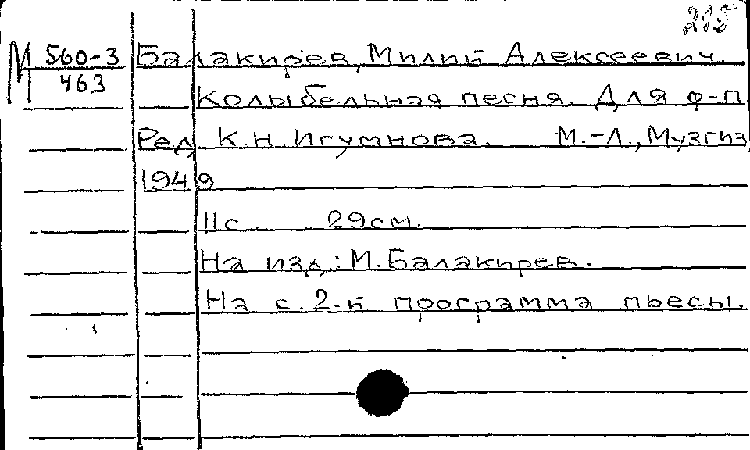 212
М 560-3
463
Балакирев, Милий Алексеевич.
Колыбельная песня. Для ф-п
Ред. К.Н.Игумнова. М.-Л., Музгиз,
1949
11с. 29см.
На изд.: М.Балакирев.
На с.2-й программа пьесы.